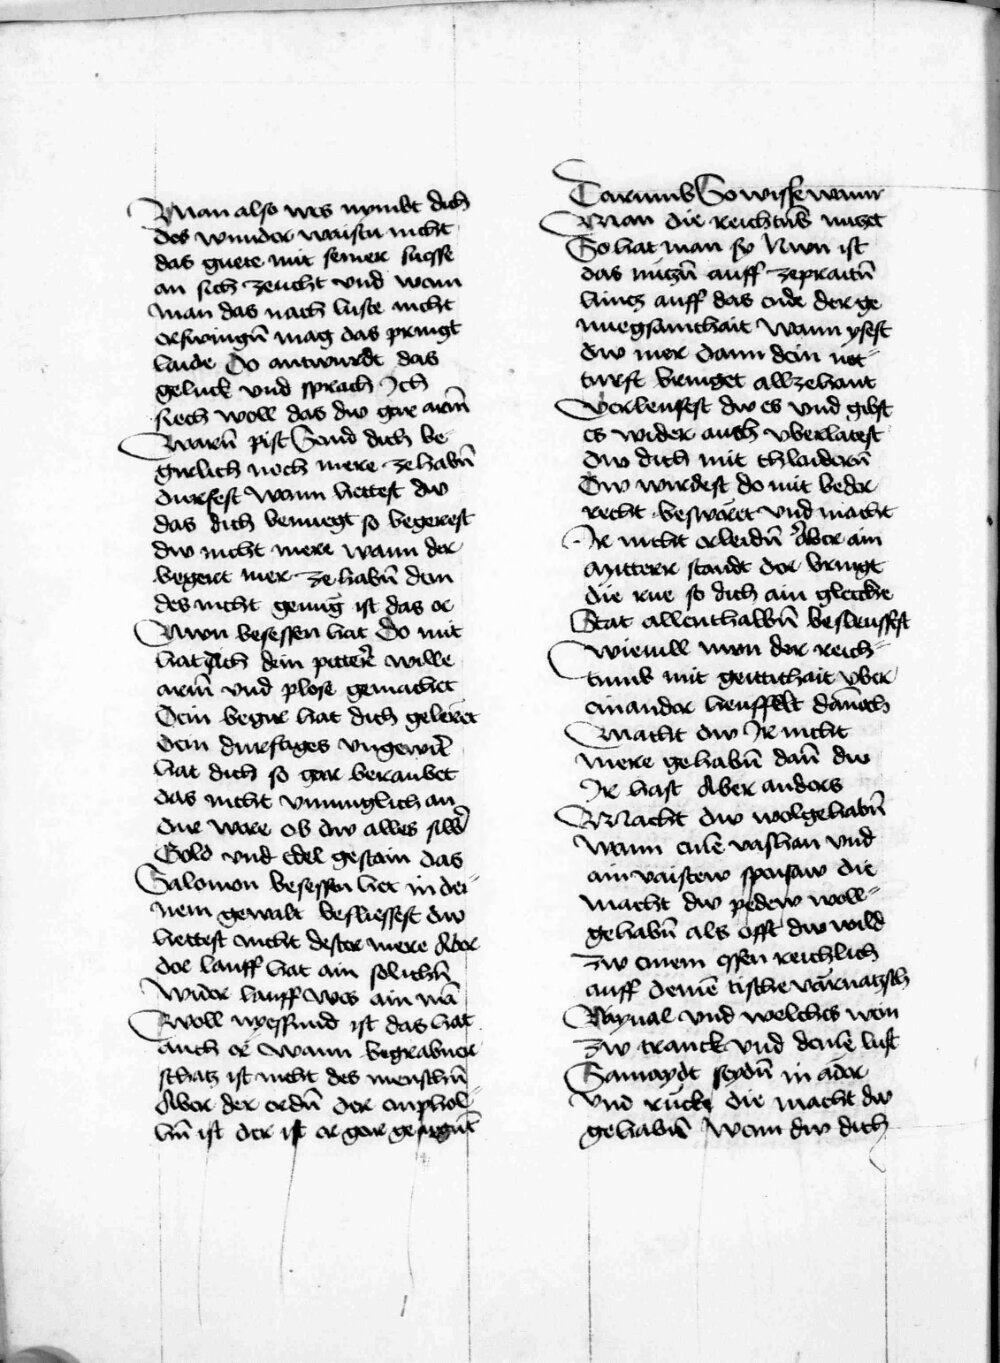 Man also wes nymbt dich
des wunder waistu nicht
das guete mit seiner suesse
an sich zeucht vnd wem
man das nach luste nicht
erswingn̄ mag das pringt
laide Do antwurdt das
geluck vnd sprach Ich
siech woll das dw gar arm̄
Warn̄ pist Seind dich be
girlich noch mere ze habn̄
durfest Wann hettest dw
das dich benuegt so begerest
dw nicht mere wann der
begert mer ze habn̄ dem
des nicht genūg ist das er
Nwn besessen hat Do mit
hat dich dein pitter wille
arm̄ vnd plose gemachet
Dein begir hat dich geleret
Dein durftiges vngewit̄
hat dich so gar beraubet
das nicht vmuglich an
dir were ob dw alles silbˀ
Gold vnd edel gestain das
Salomon besessen het in dei⸗
nem gewalt besliessest dw
hettest nicht dester mere Aber
der lauff hat ain solichn̄
Wider lauff Wes ain mā
Woll nyessund ist das hat
auch er Wann begrabner
schatz ist nicht des menschn̄
Aber der erdn̄ der enphol⸗
hn̄ ist der ist er gar
Darumb So wisse wann
Man die reichtūb nuczet
So hat man sy Nwn ist
das nuczn̄ auff zepraitn̄
hincz auff das ende der ge
nuegsamchait Wann ysest
dw mer dann dein not⸗
turft bringet allzehant
Verleusest dw es vnd gibst
es wider auch vberlatest
dw dich mit chlaidern̄
Dw wirdest do mit beder
recht beswäret vnd macht
Ir nicht erleidn̄ Aber ain
mitterr standt der bringt
die rue so dich ain gleiche
Stat allenthalbn̄ besleusst
Wieuill nwn der reich⸗
tumb mit geitichait vber
einander heuffelt dannoch
Macht dw Ir nicht
mere gehabn̄ dan̄ dw
Ir hast Aber anders
Macht dw wolgehabn̄
Wann eine vashan vnd
ain vaistew spensaw die
macht dw pedew woll⸗
gehabn̄ als offt dw wild
zw einem essen reichlich
auff deinē tische
Raynual vnd welches wein
zw tranck vnd deinē lust
Samaydt seydn̄ in ader
vnd rucke die macht dw
gehabn̄ Wem dw dich